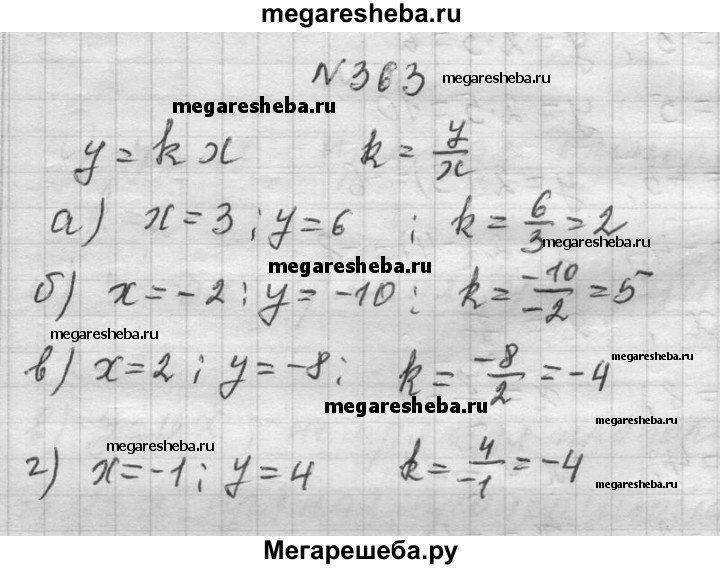 megaresheba.ru
N 363 megaresheba.ru
megaresheba.ru
y = kx k = y/x
а) x = 3; y = 6; k = 6/3 = 2
megaresheba.ru
megaresheba.ru
б) x = -2; y = -10; k = -10/-2 = 5
megaresheba.ru megaresheba.ru
в) x = 2; y = -8; k = -8/2 = -4
megaresheba.ru
megaresheba.ru
megaresheba.ru
megaresheba.ru
г) x = -1; y = 4 k = 4/-1 = -4
megaresheba.ru
Мегарешеба.ру